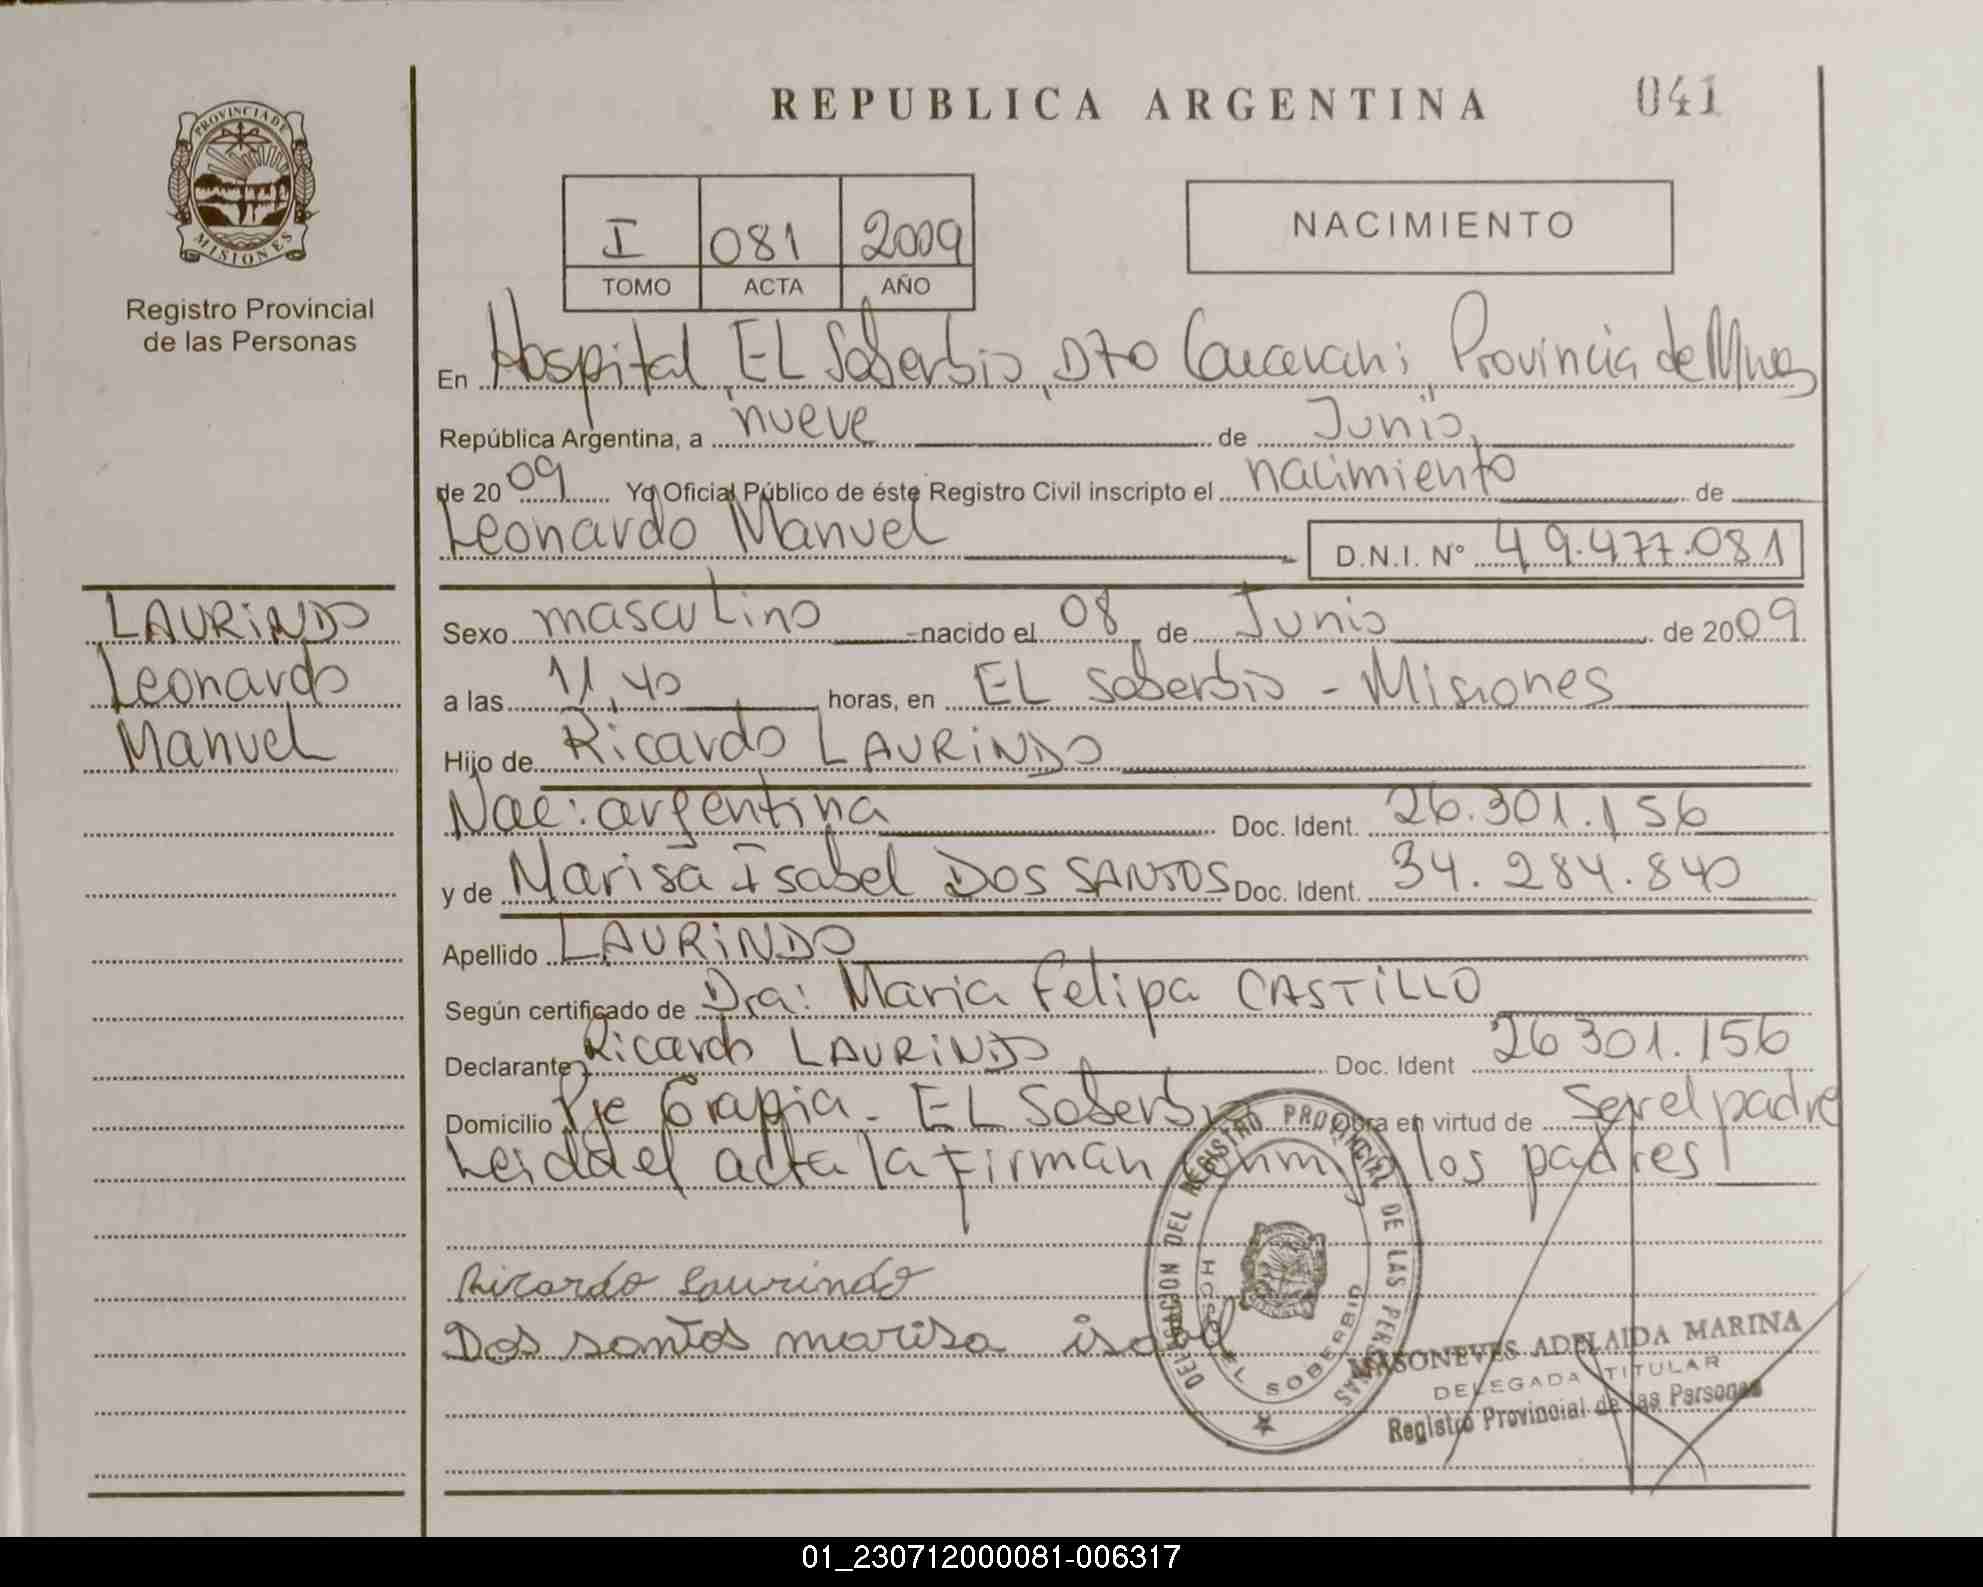 REPUBLICA ARGENTINA
041
PROVINCIA DE
MISIONES
Registro Provincial
de las Personas
I 081 2009
TOMO ACTA AÑO
NACIMIENTO
En Hospital EL Soberbio, Dto Provincia de Mnes
República Argentina, a nueve de Junio,
de 2009 Yo Oficial Público de éste Registro Civil inscripto el nacimiento de
Leonardo Manuel D.N.I. Nº 49.477.081
LAURiNDO
Leonardo
Manuel
Sexo masculino nacido el 08 de Junio de 2009
a las 11,40 horas, en EL Soberbio - Misiones
Hijo de Ricardo LAURiNDO
Nac: argentina Doc. Ident. 26.301.156
y de Marisa Isabel DOS SANTOS Doc. Ident. 34.284.840
Apellido LAURiNDO
Según certificado de Dra: Maria Felipa CASTiLLO
Declarante Ricardo LAURiNDO Doc. Ident 26301.156
Domicilio Pje - EL Soberbio Obra en virtud de Ser el padre
Leida el acta la firman los padres
Ricardo Laurindo
Dos santos marisa isabel
DELEGACION DEL REGISTRO PROVINCIAL DE LAS PERSONAS
HOSP. EL SOBERBIO
MASONEVES ADELAIDA MARINA
DELEGADA TITULAR
Registro Provincial de las Personas
01_230712000081-006317